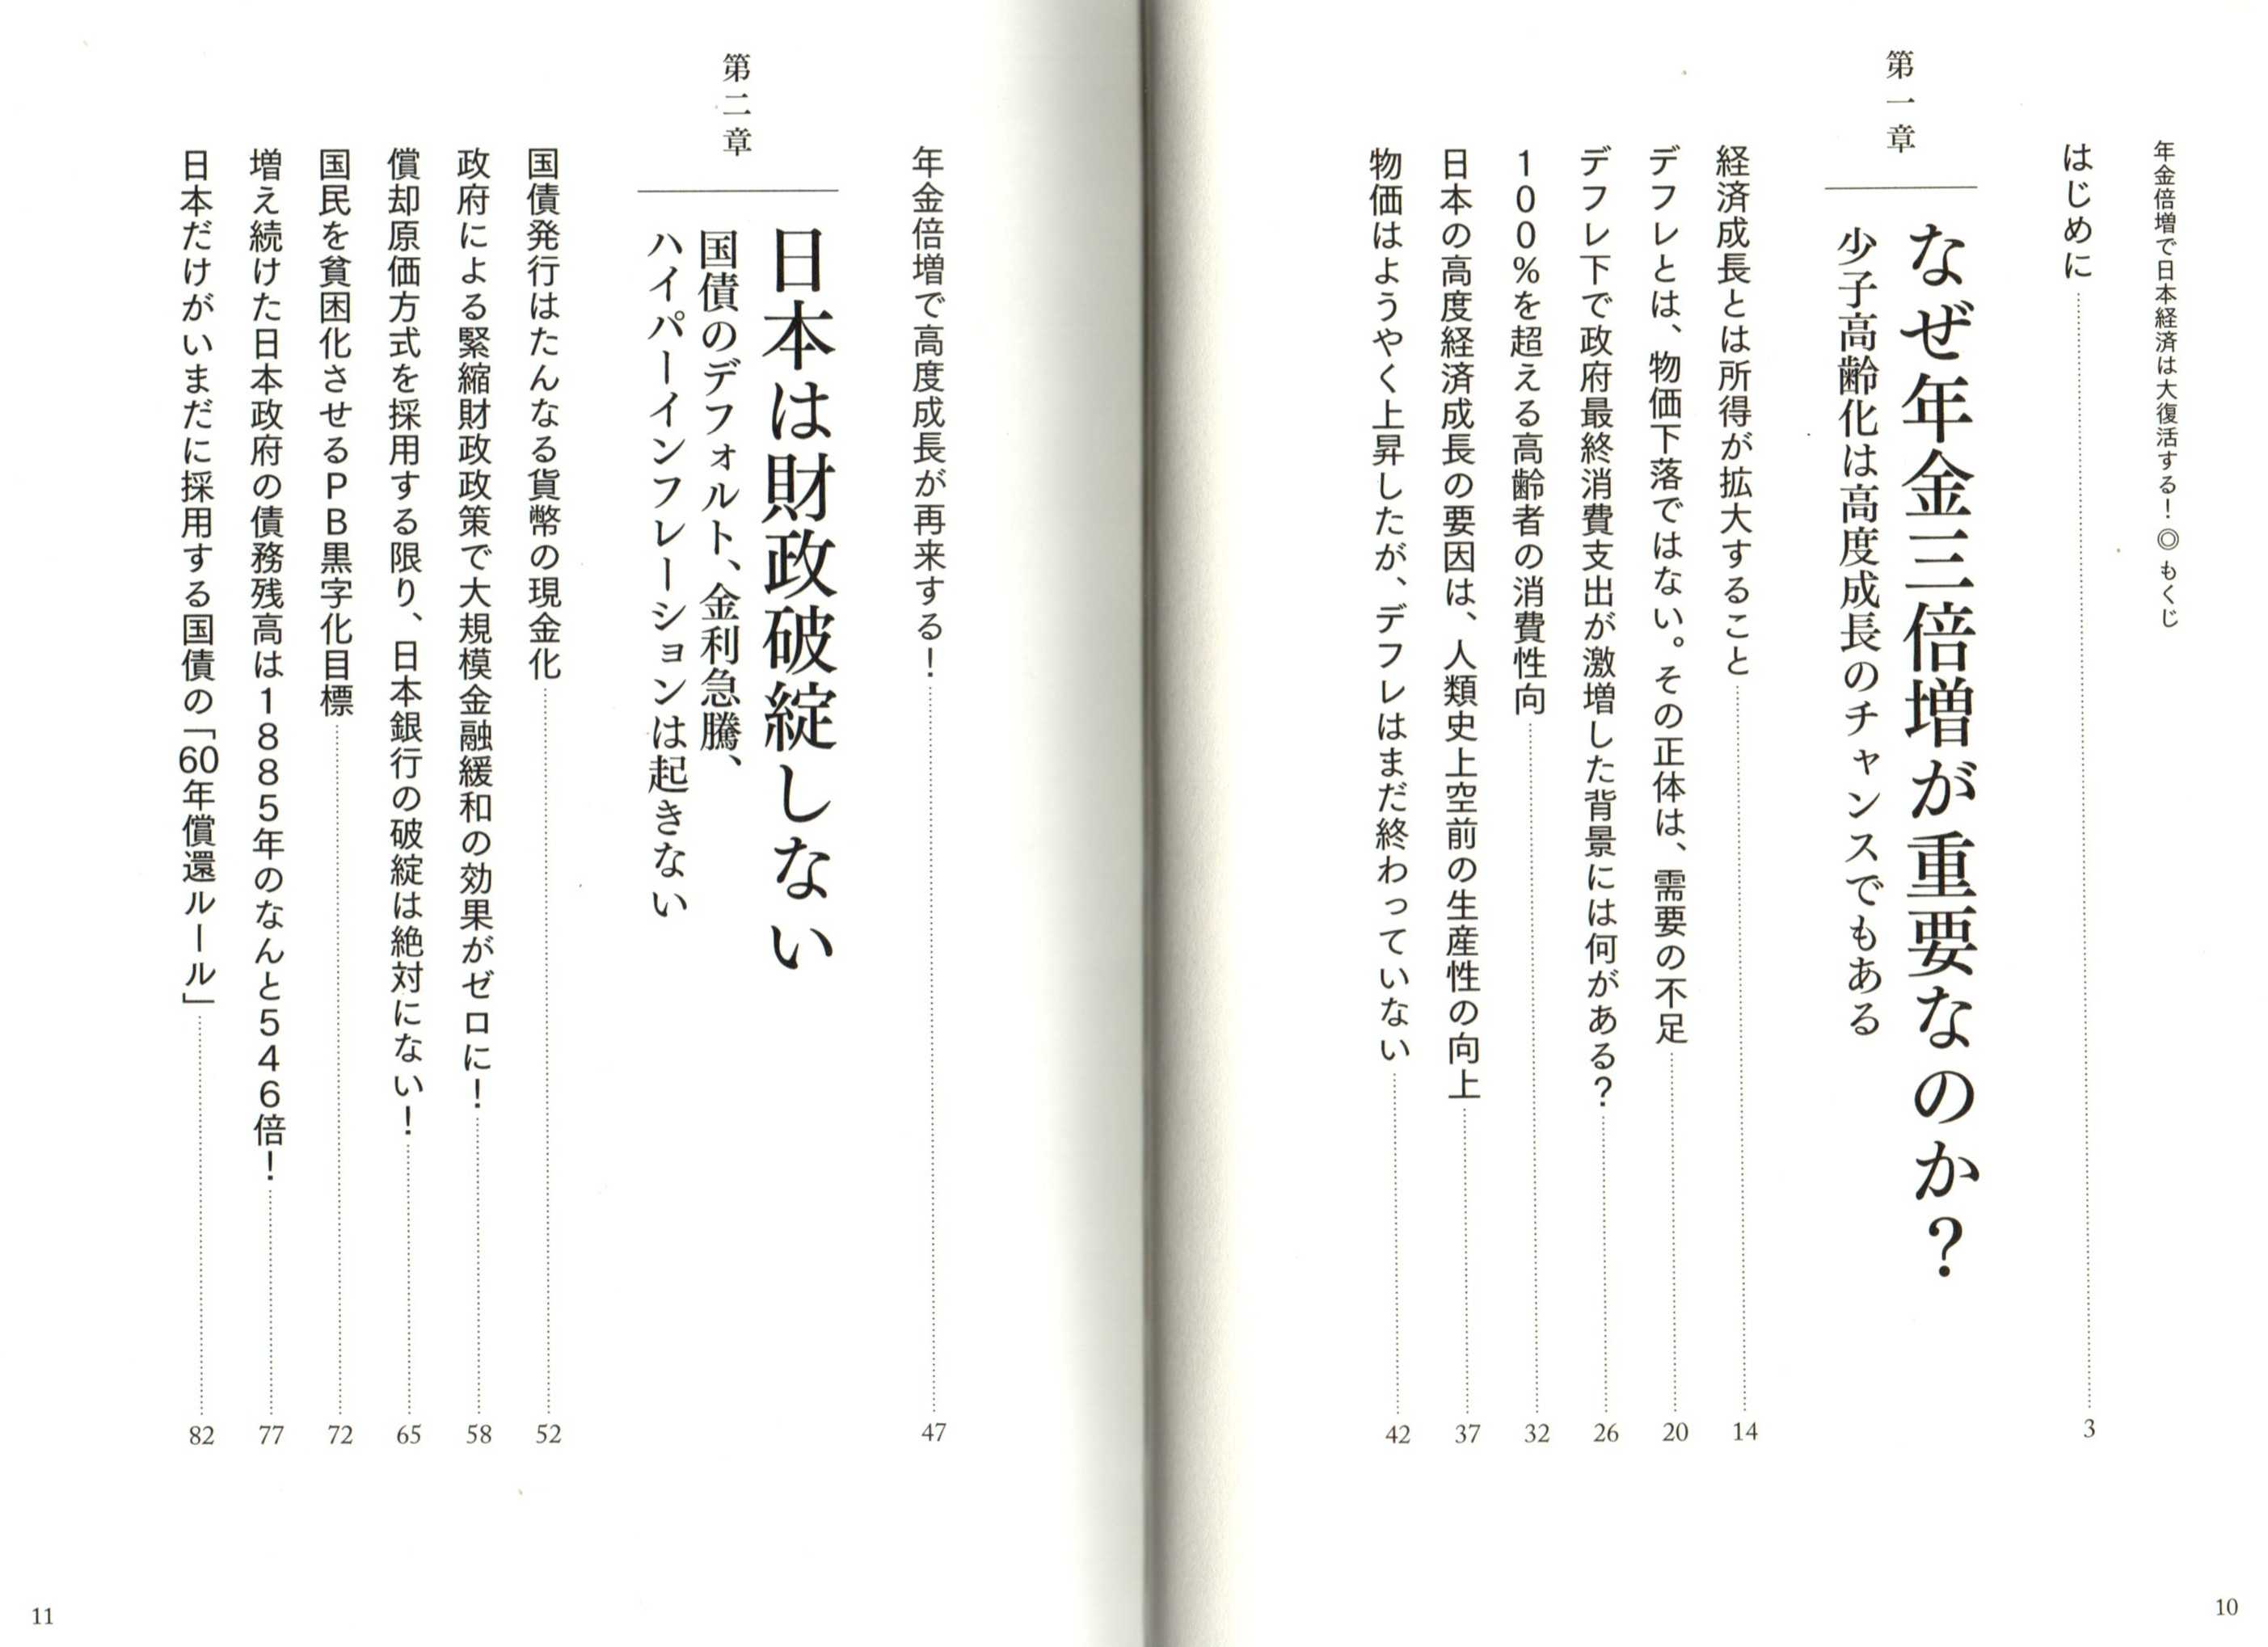 年金倍増で日本経済は大復活する！◎もくじ
はじめに 3
第一章
なぜ年金三倍増が重要なのか？
少子高齢化は高度成長のチャンスでもある
経済成長とは所得が拡大すること 14
デフレとは、物価下落ではない。その正体は、需要の不足 20
デフレ下で政府最終消費支出が激増した背景には何がある？ 26
100％を超える高齢者の消費性向 32
日本の高度経済成長の要因は、人類史上空前の生産性の向上 37
物価はようやく上昇したが、デフレはまだ終わっていない 42
10
年金倍増で高度成長が再来する！ 47
第二章
日本は財政破綻しない
国債のデフォルト、金利急騰、
ハイパーインフレーションは起きない
国債発行はたんなる貨幣の現金化 52
政府による緊縮財政政策で大規模金融緩和の効果がゼロに！ 58
償却原価方式を採用する限り、日本銀行の破綻は絶対にない！ 65
国民を貧困化させるPB黒字化目標 72
増え続けた日本政府の債務残高は1885年のなんと546倍！ 77
日本だけがいまだに採用する国債の「60年償還ルール」 82
11